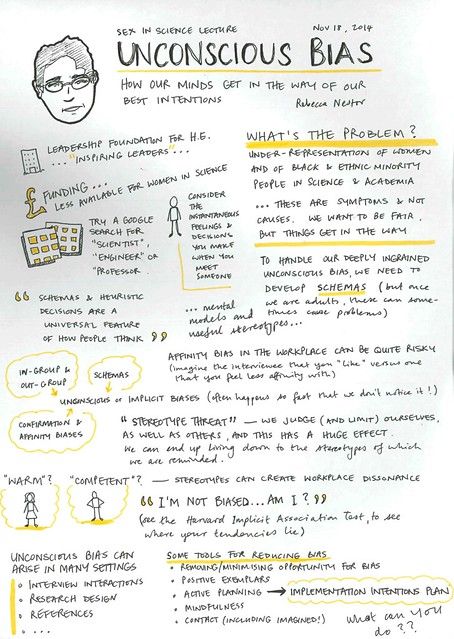 SEX IN SCIENCE LECTURE
NOV 18, 2014
UNCONSCIOUS BIAS
HOW OUR MINDS GET IN THE WAY OF OUR
BEST INTENTIONS
Rebecca Nestor
LEADERSHIP FOUNDATION FOR H.E.
... "INSPIRING LEADERS" ...
£ FUNDING ...
LESS AVAILABLE FOR WOMEN IN SCIENCE
TRY A GOOGLE
SEARCH FOR
"SCIENTIST",
"ENGINEER" OR
"PROFESSOR"
CONSIDER
THE
INSTANTANEOUS
FEELINGS &
DECISIONS
YOU MAKE
WHEN YOU
MEET
SOMEONE
WHAT'S THE PROBLEM?
UNDER-REPRESENTATION OF WOMEN
AND OF BLACK & ETHNIC MINORITY
PEOPLE IN SCIENCE & ACADEMIA
... THESE ARE SYMPTOMS & NOT
CAUSES. WE WANT TO BE FAIR,
BUT THINGS GET IN THE WAY
TO HANDLE OUR DEEPLY INGRAINED
UNCONSCIOUS BIAS, WE NEED TO
DEVELOP SCHEMAS (but once
we are adults, these can some-
times cause problems)
... mental
models and
useful stereotypes...
"SCHEMAS & HEURISTIC
DECISIONS ARE A
UNIVERSAL FEATURE
OF HOW PEOPLE THINK"
AFFINITY BIAS IN THE WORKPLACE CAN BE QUITE RISKY
(imagine the interviewee that you "like" versus one
that you feel less affinity with)
IN-GROUP &
OUT-GROUP
SCHEMAS
UNCONSCIOUS OR IMPLICIT BIASES (often happens so fast that we don't notice it!)
CONFIRMATION &
AFFINITY BIASES
"STEREOTYPE THREAT" — WE JUDGE (AND LIMIT) OURSELVES,
AS WELL AS OTHERS, AND THIS HAS A HUGE EFFECT.
We can end up living down to the stereotypes of which
we are reminded.
"WARM"? "COMPETENT"? — STEREOTYPES CAN CREATE WORKPLACE DISSONANCE
"I'M NOT BIASED... AM I?"
(see the Harvard Implicit Association Test, to see
where your tendencies lie)
UNCONSCIOUS BIAS CAN
ARISE IN MANY SETTINGS
• INTERVIEW INTERACTIONS
• RESEARCH DESIGN
• REFERENCES
• ....
SOME TOOLS FOR REDUCING BIAS
• REMOVING/MINIMISING OPPORTUNITY FOR BIAS
• POSITIVE EXEMPLARS
• ACTIVE PLANNING → IMPLEMENTATION INTENTIONS PLAN
• MINDFULNESS
• CONTACT (INCLUDING IMAGINED!)
What can you
do??